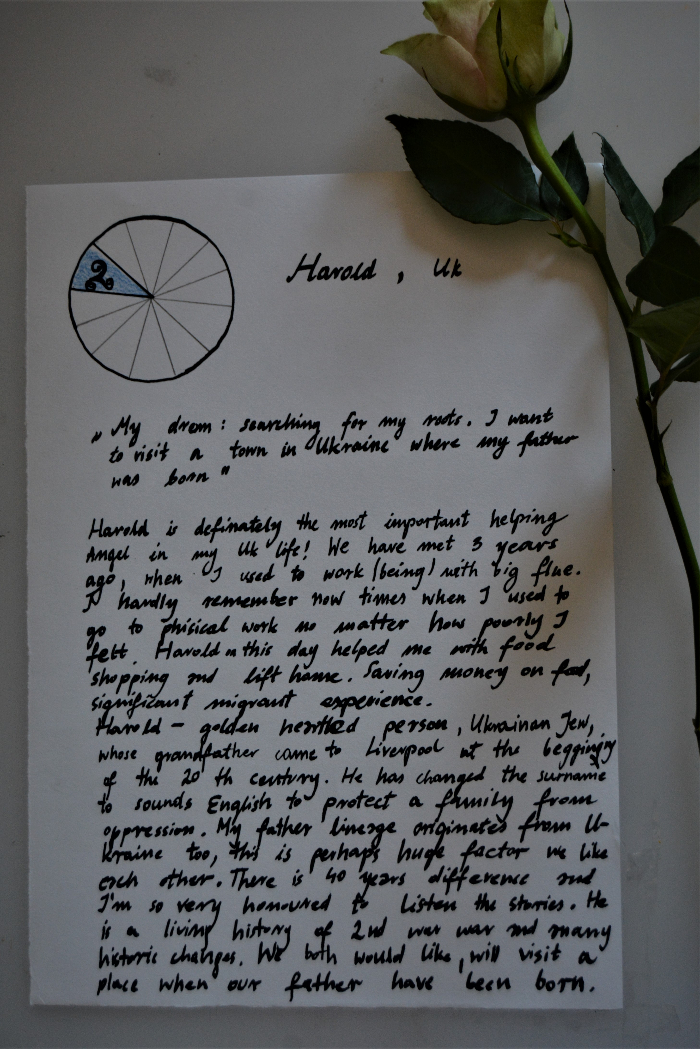 2
Harold, Uk
„ My drem: searching for my roots. I want
to visit a town in Ukraine where my father
was born "
Harold is definately the most important helping
Angel in my Uk life! We have met 3 years
ago, when I used to work (being) with big flue.
I hardly remember now times when I used to
go to phisical work no matter how poorly I
felt. Harold on this day helped me with food
shopping and lift home. Saving money on food,
significant migrant experience.
Harold - golden hearted person, Ukrainan Jew,
whose grandfather came to Liverpool at the beggining
of the 20 th century. He has changed the surname
to sounds English to protect a family from
oppression. My father lineage originates from U-
kraine too, this is perhaps huge factor we like
each other. There is 40 years difference and
I'm so very honoured to listen the stories. He
is a living history of 2nd war war and many
historic changes. We both would like, will visit a
place when our father have been born.